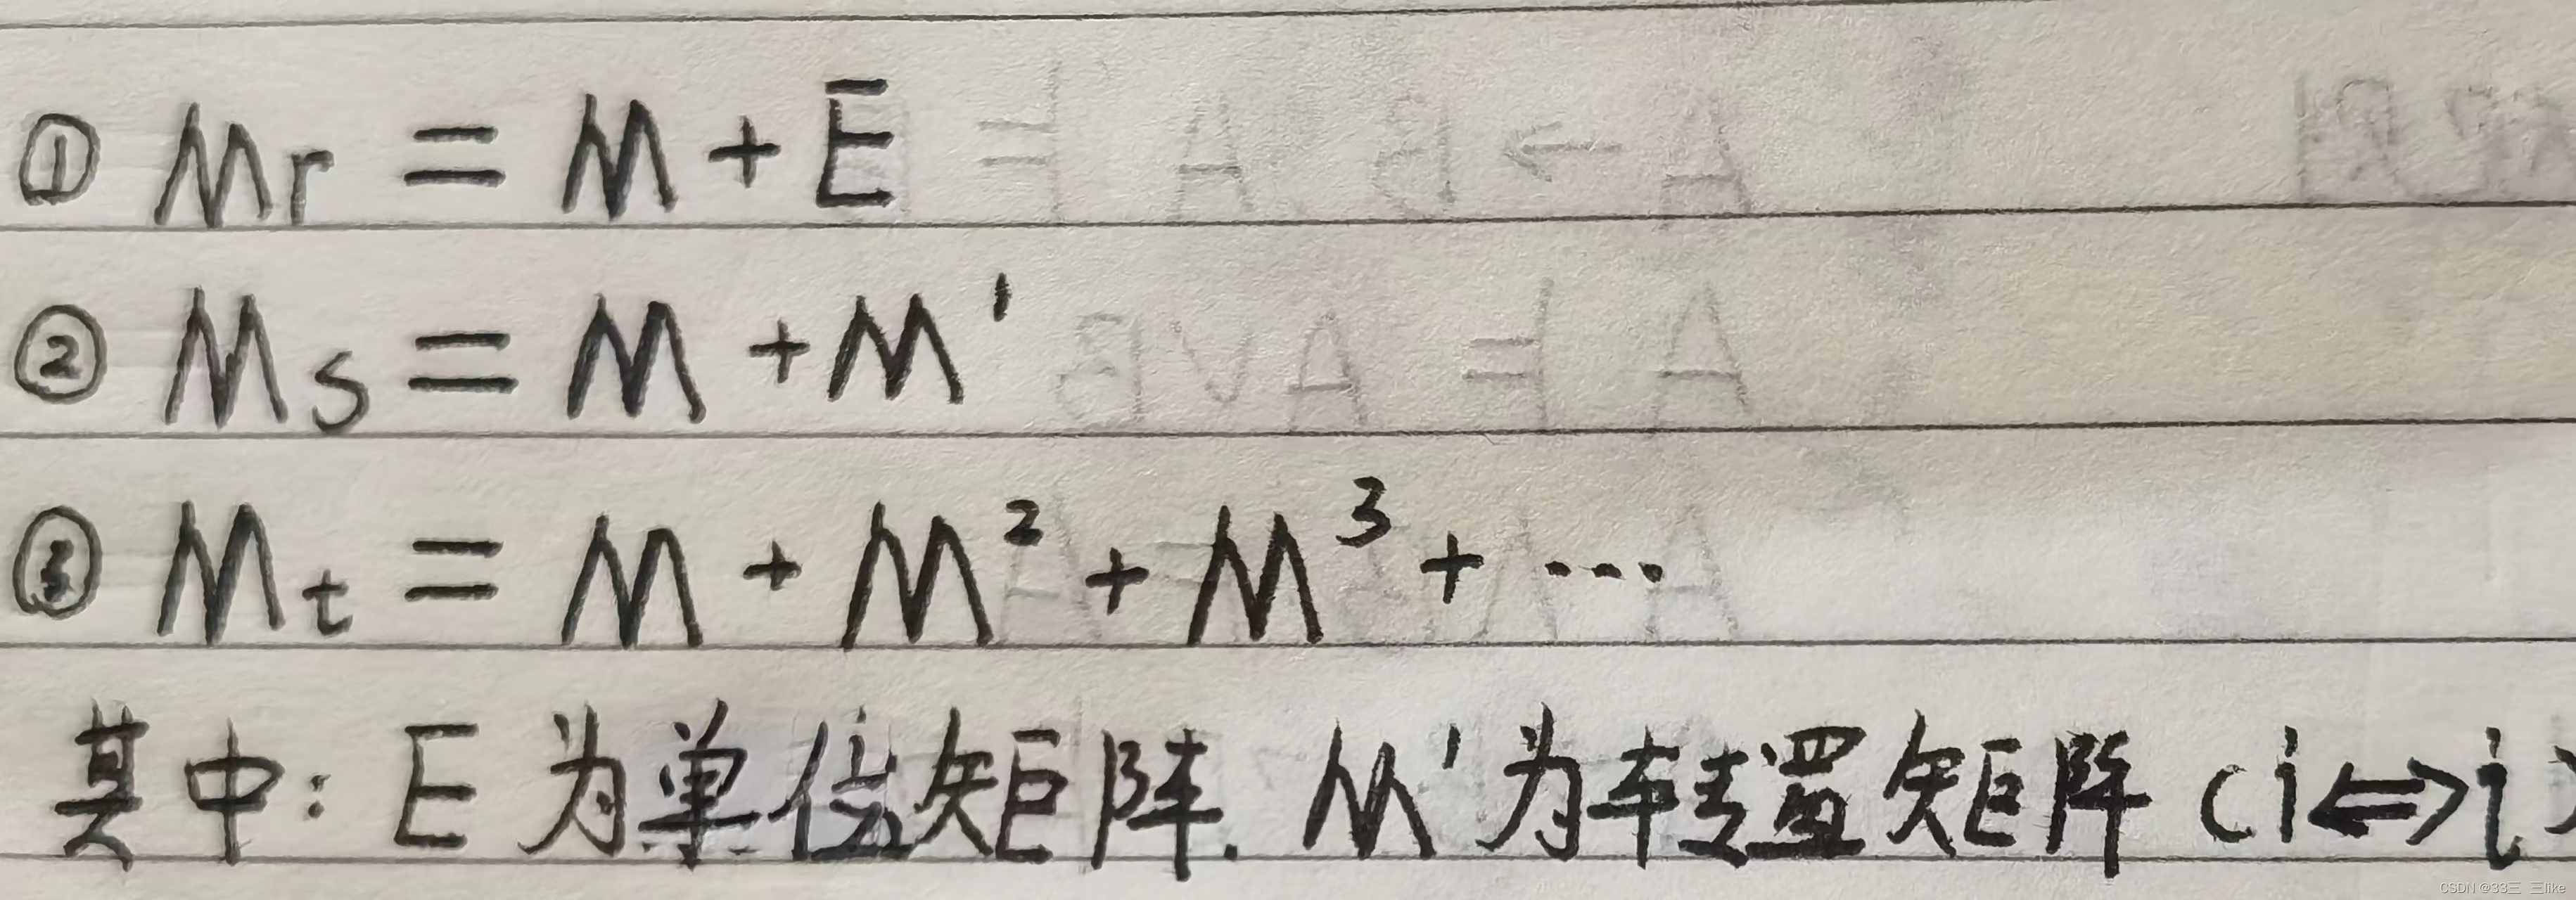 ① Mr = M + E
② Ms = M + M'
③ Mt = M + M² + M³ + ...
其中: E 为单位矩阵. M'为转置矩阵 (i⇔j)
CSDN @33三 三like